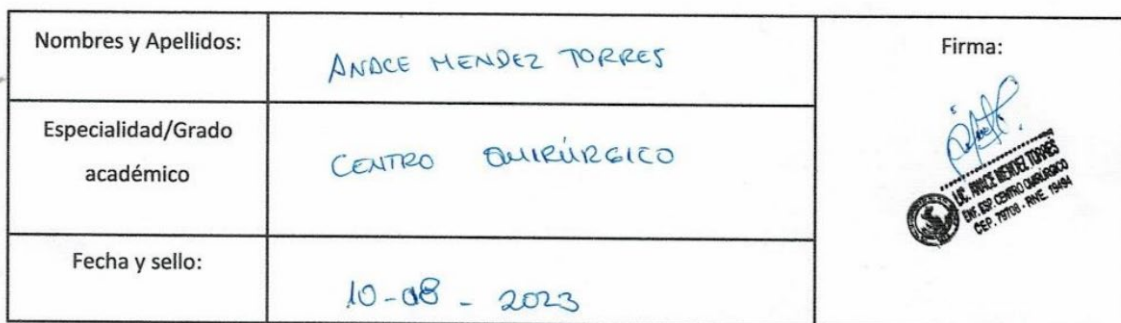 Nombres y Apellidos:
ANACE MENDEZ TORRES
Firma:
Especialidad/Grado
académico
CENTRO QUIRÚRGICO
LIC. ANACE MENDEZ TORRES
ENF. ESP. CENTRO QUIRÚRGICO
CEP. 79708 - RNE. 19494
Fecha y sello:
10-08-2023